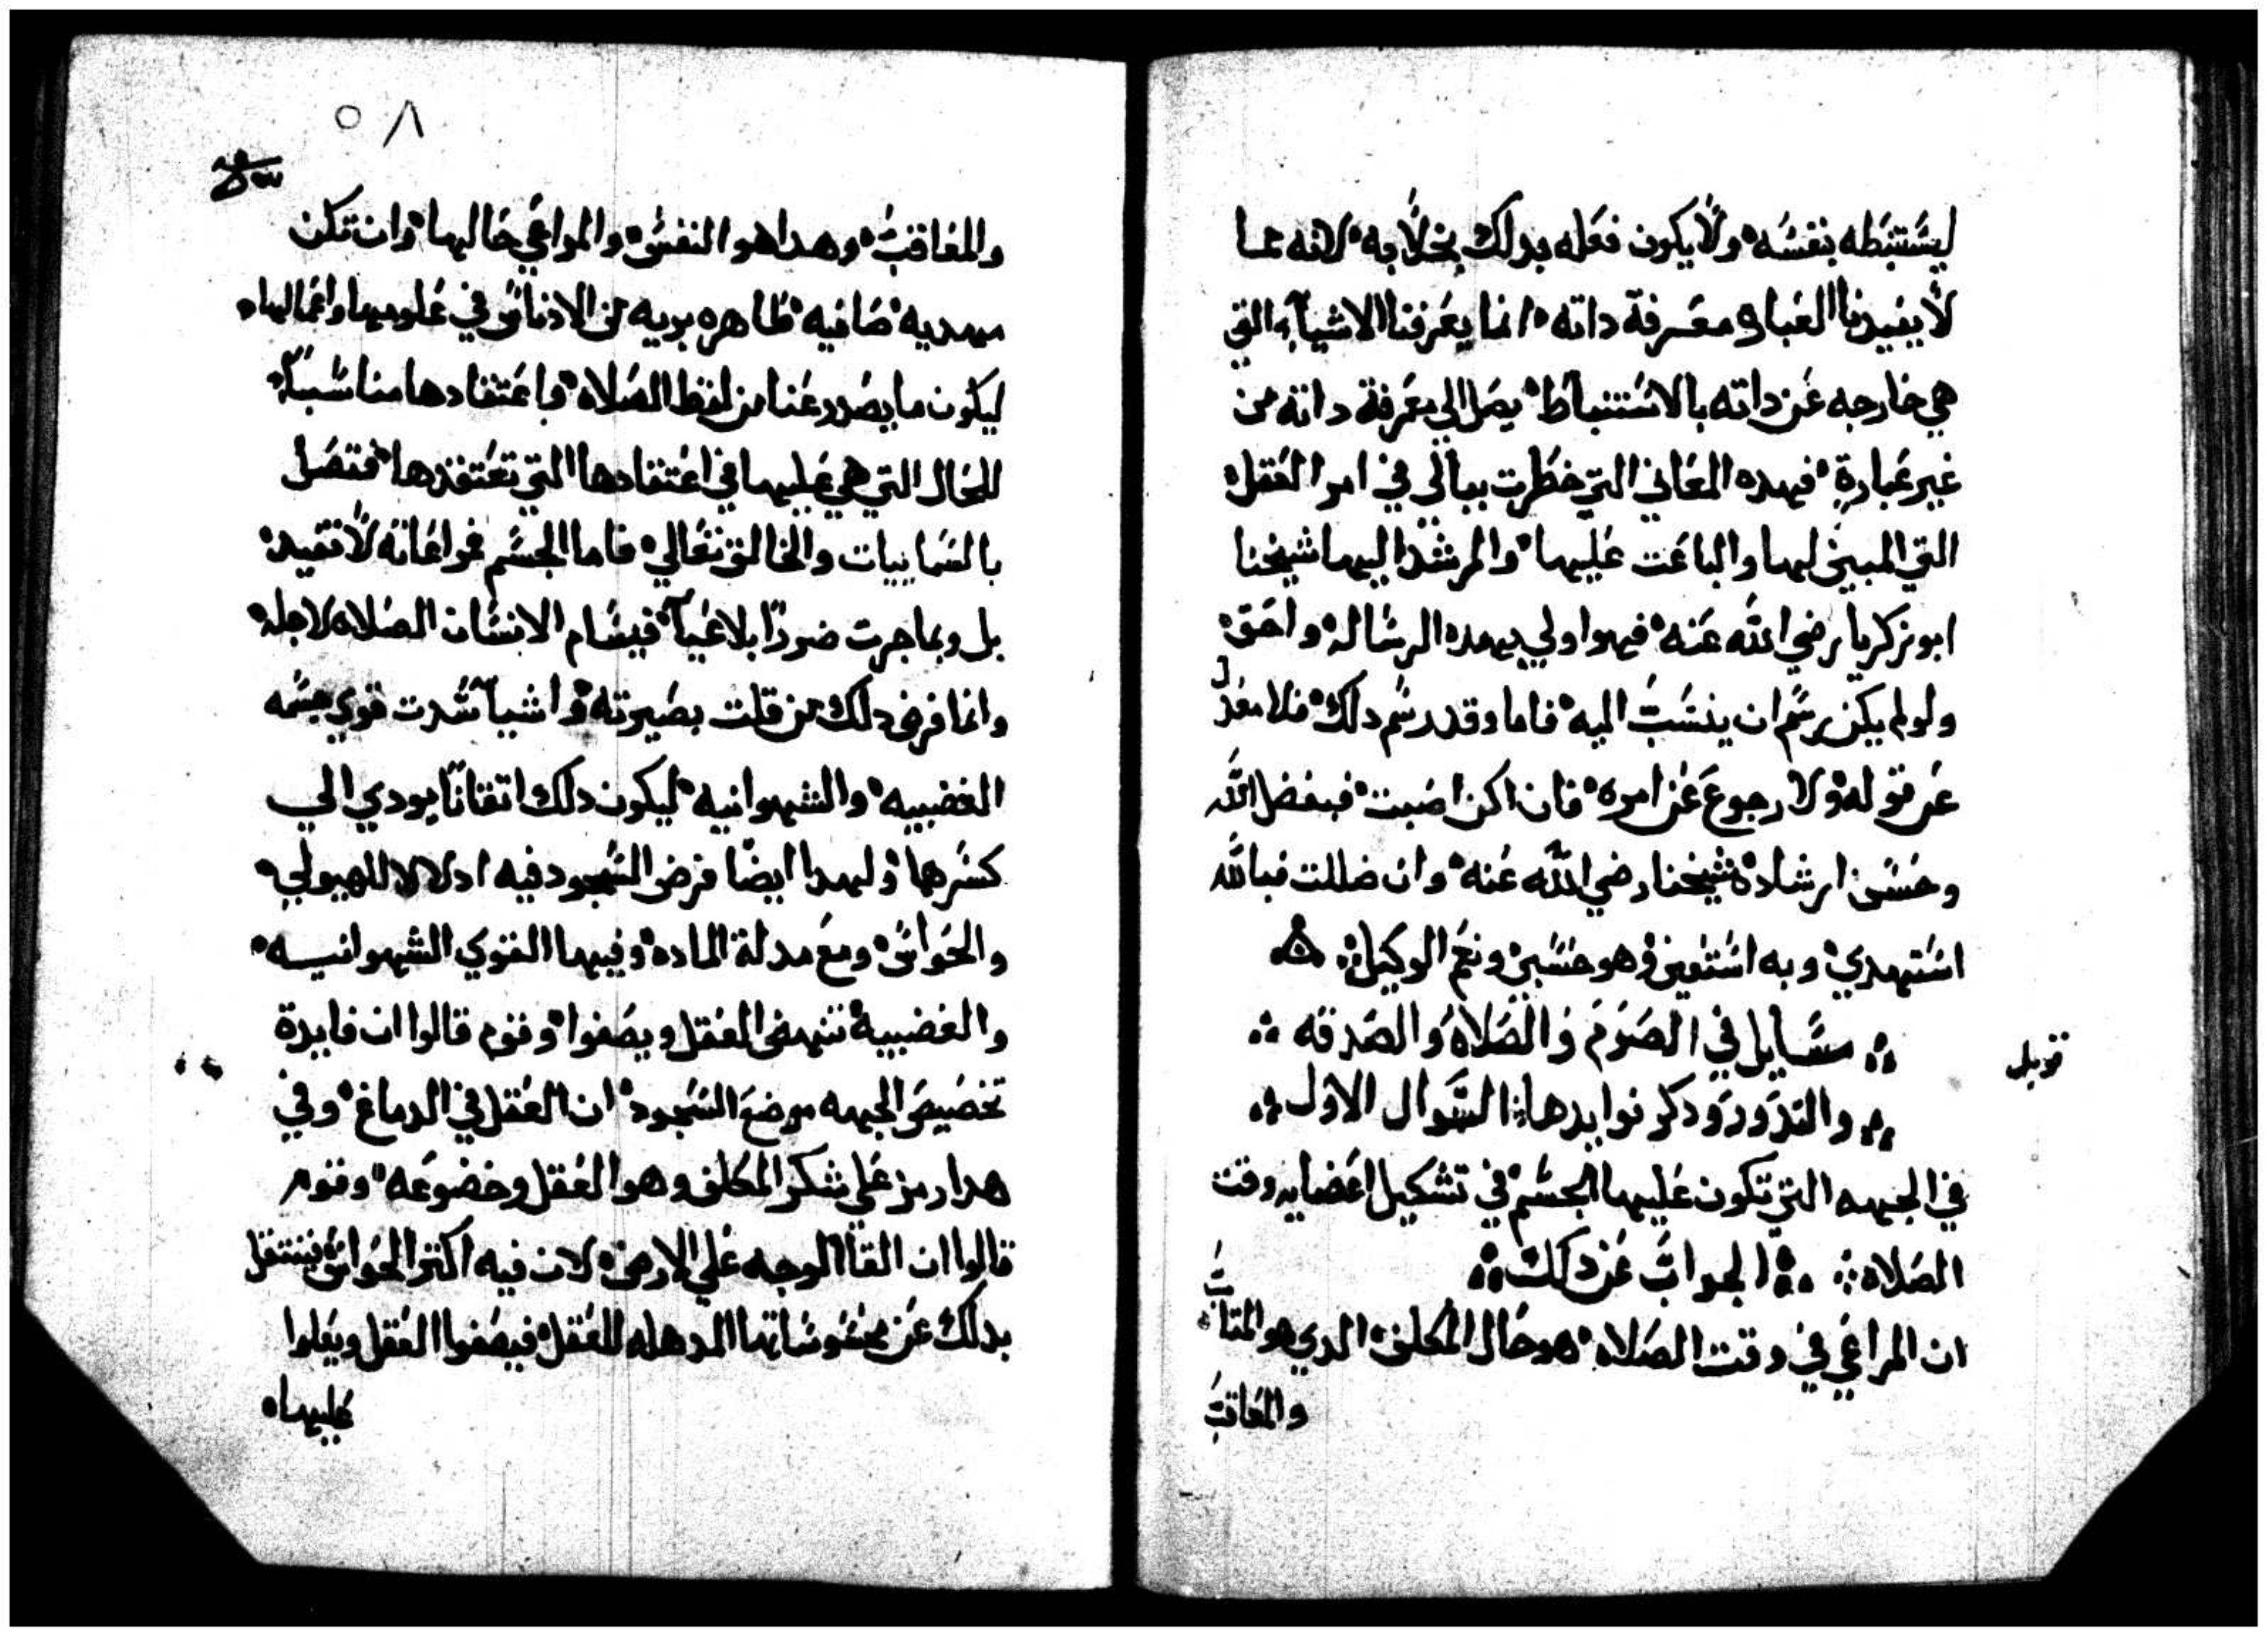 ليستنبطه بنفسه ولا يكون فعله بدلك بخلا به لانه مما
لا يفيدنا العباره معرفة داته انما يعرفنا الاشيآء التي
هي خارجه عن داته بالاستنباط يصل الي معرفة داته من
غير عبارة فهده المعاني التي خطرت ببالي في امر العقل
التي المبين لها والباعت عليها والمرشد اليها شيخنا
ابو زكريا رضي الله عنه فهوا ولي بهده الرساله واحق
ولو لم يكن رسم ان ينسب اليه فاما وقد رسم دلك فلا معدل
عن قوله ولا رجوع عن امره فان اكن اصبت فبفضل الله
وحسن ارشاده شيخنا رضي الله عنه وان ضللت فبالله
استهدي وبه استعين وهو حسبي ونعم الوكيل
مسايل في الصوم والصلاة والصدقه
والندور ودكر فوايدها السوال الاول
في الجهه التي تكون عليها الجسم في تشكيل اعضايه وقت
الصلاه الجواب عن دلك
ان المراعي في وقت الصلاه هو حال المكلف الدي هو المتاب
والمعاقب
قوبل
٥٨
والمعاقب وهدا هو النفس والمراعي حالها وان تكن
مهديه صافيه طاهره بريه من الادناس في علومها واعمالها
ليكون ما يصدر عنا من لفظ الصلاه باعتقادها مناسبا
للحال التي هي عليها في اعتقادها التي تعتقدها فتصل
بالسماييات والخالق تعالي فاما الجسم فمراعاته لا تفيد
بل وبما جرت ضررا بلاغيآ فيسام الانسان الصلاه لاجله
وانما فرض دلك من قلت بصيرته واشيآ شدت قوي جسمه
الغضبيه والشهوانيه ليكون دلك اتقانا يودي الي
كسرها ولهدا ايضا فرض السجود فيه ادلالا للهيولي
والحواس ومع مدلة الماده وفيها القوي الشهوانيه
والغضبيه تنهض العقل ويصفوا وقوم قالوا ان فايدة
تخصيص الجبهه موضع السجود ان العقل في الدماغ وفي
هدا رمز علي شكر المكلف وهو العقل وخضوعه وقوم
قالوا ان القآ الوجه علي الارض لان فيه اكتر الحواس فينتقل
بدلك عن محسوساتها المدهله للعقل فيصفوا العقل ويعلوا
عليها